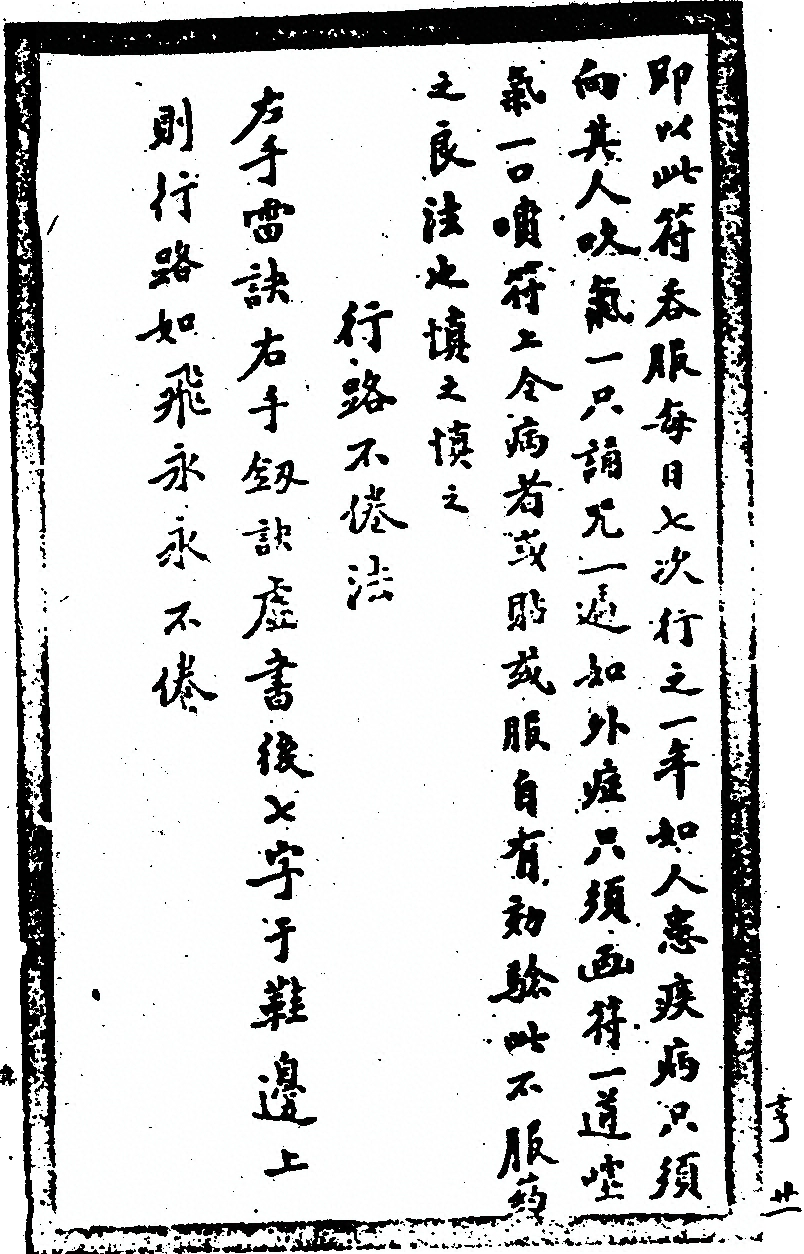 即以此符吞服每日七次行之一年如人患疾病只須
向其人吹氣一只誦咒一遍如外症只須画符一道
氣一口噴符上令病者或貼或服自有効驗此不服药
之良法也慎之慎之
行路不倦法
右手雷訣右手劔訣虛書後七字于鞋邊上
則行路如飛永永不倦
亨
廿一